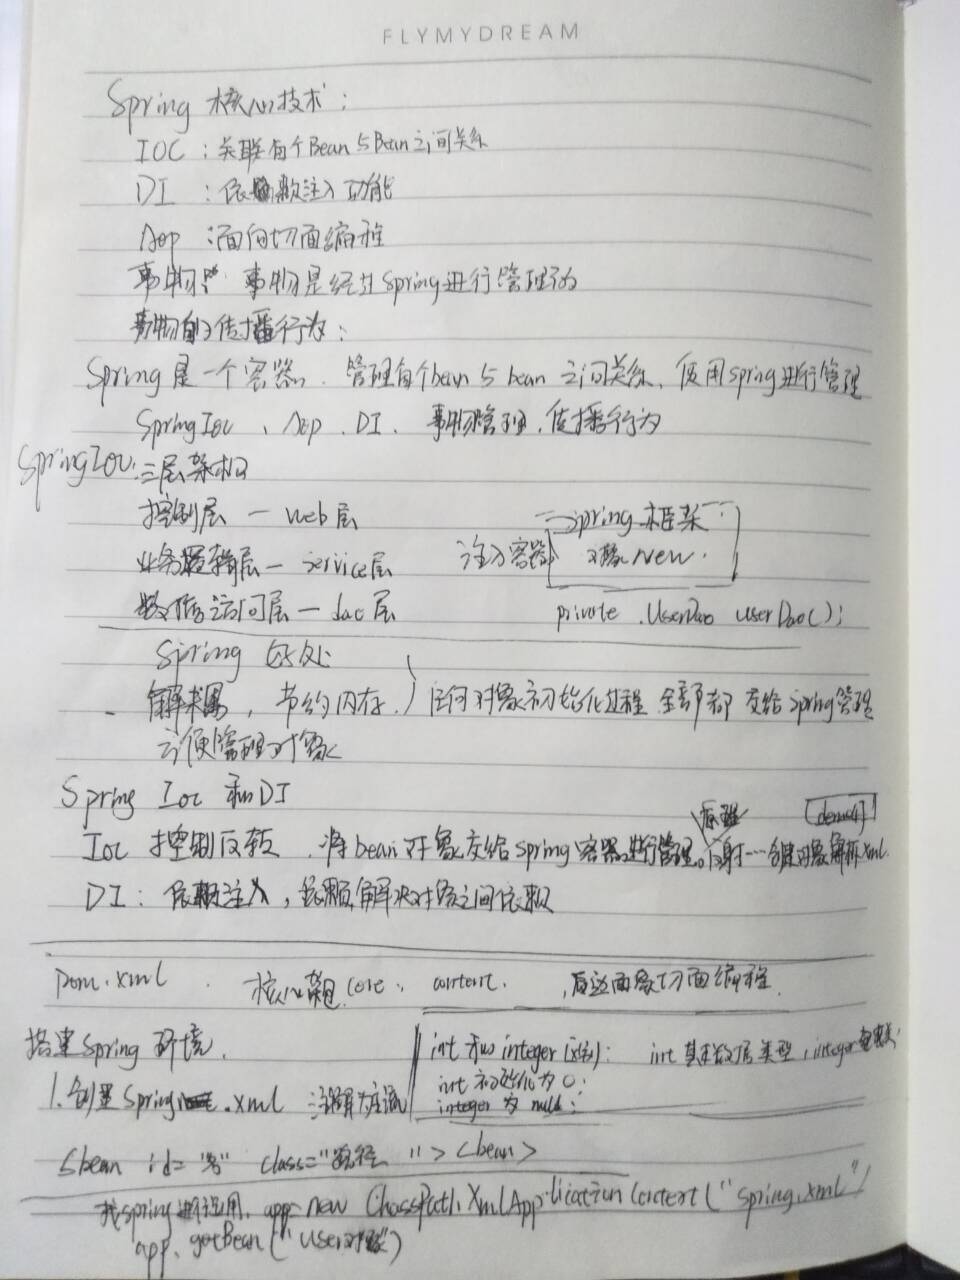 FLYMYDREAM
Spring 核心技术：
IOC：关联每个Bean与Bean之间关系
DI：依赖注入功能
Aop：面向切面编程
事物：事物是经过Spring进行管理的
事物的传播行为：
Spring是一个容器、管理每个bean与bean之间关系、使用spring进行管理
Spring Ioc、Aop、DI、事物管理、传播行为
Spring Ioc：三层架构
控制层—web层
业务逻辑层—service层
数据访问层—dao层
Spring框架
注入容器 对象New.
private UserDao userDao();
Spring 好处
解耦，节约内存.）任何对象初始化过程 全部都交给Spring管理
方便管理对象
Spring Ioc 和DI
原理 demo4
Ioc 控制反转.将bean对象交给Spring容器进行管理。反射…创建对象解析xml.
DI：依赖注入，依赖解决对象之间依赖
pom.xml. 核心 core. content. 面象切面编程
搭建Spring环境.
int和integer区别：int基本数据类型，integer包装类；
int初始化为0；
integer为null；
1.创建Spring.xml 注解为主流
<bean id="名" class="路径"> <bean>
找spring进行运用. app=new ClassPathXmlApplicationContext("spring.xml")
app.getBean("user对象")